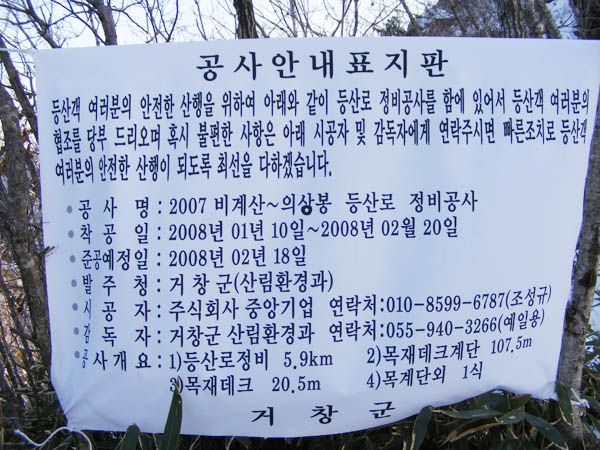 공사안내표지판
등산객 여러분의 안전한 산행을 위하여 아래와 같이 등산로 정비공사를 함에 있어서 등산객 여러분의
협조를 당부 드리오며 혹시 불편한 사항은 아래 시공자 및 감독자에게 연락주시면 빠른조치로 등산객
여러분의 안전한 산행이 되도록 최선을 다하겠습니다.
공 사 명 : 2007 비계산~의상봉 등산로 정비공사
착 공 일 : 2008년 01월 10일~2008년 02월 20일
준공예정일 : 2008년 02월 18일
발 주 청 : 거창군(산림환경과)
시 공 자 : 주식회사 중앙기업 연락처:010-8599-6787(조성규)
감 독 자 : 거창군 산림환경과 연락처:055-940-3266(예일용)
공사개요 : 1)등산로정비 5.9km 2)목재데크계단 107.5m
3)목재데크 20.5m 4)목계단외 1식
거창군